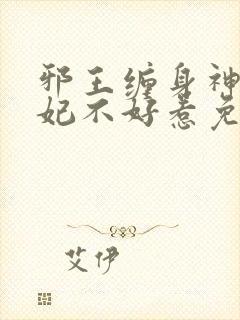 邪王缠身神
妃不好惹免
艾伊